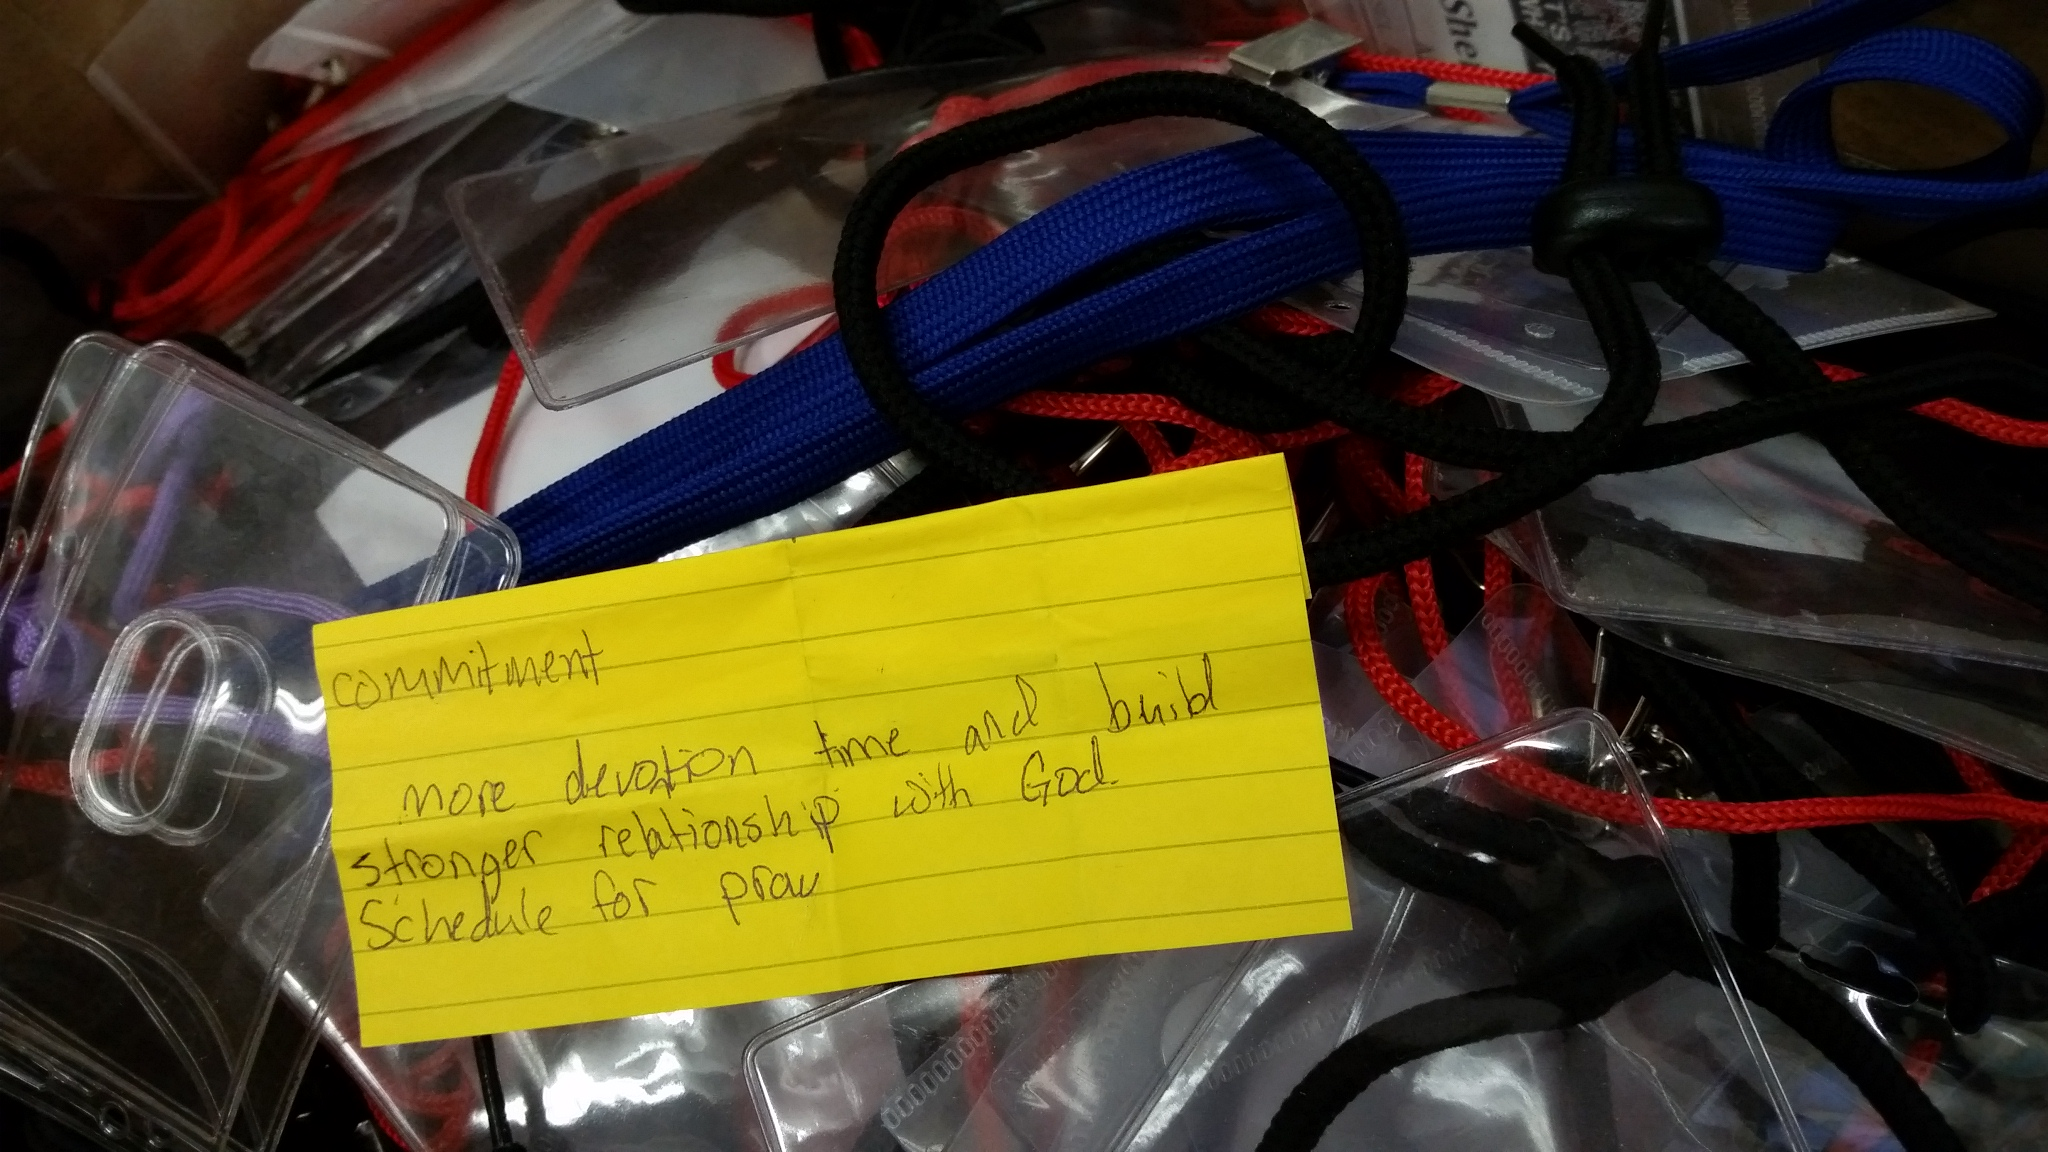 commitment
more devotion time and build
stronger relationship with God.
Schedule for pray
She